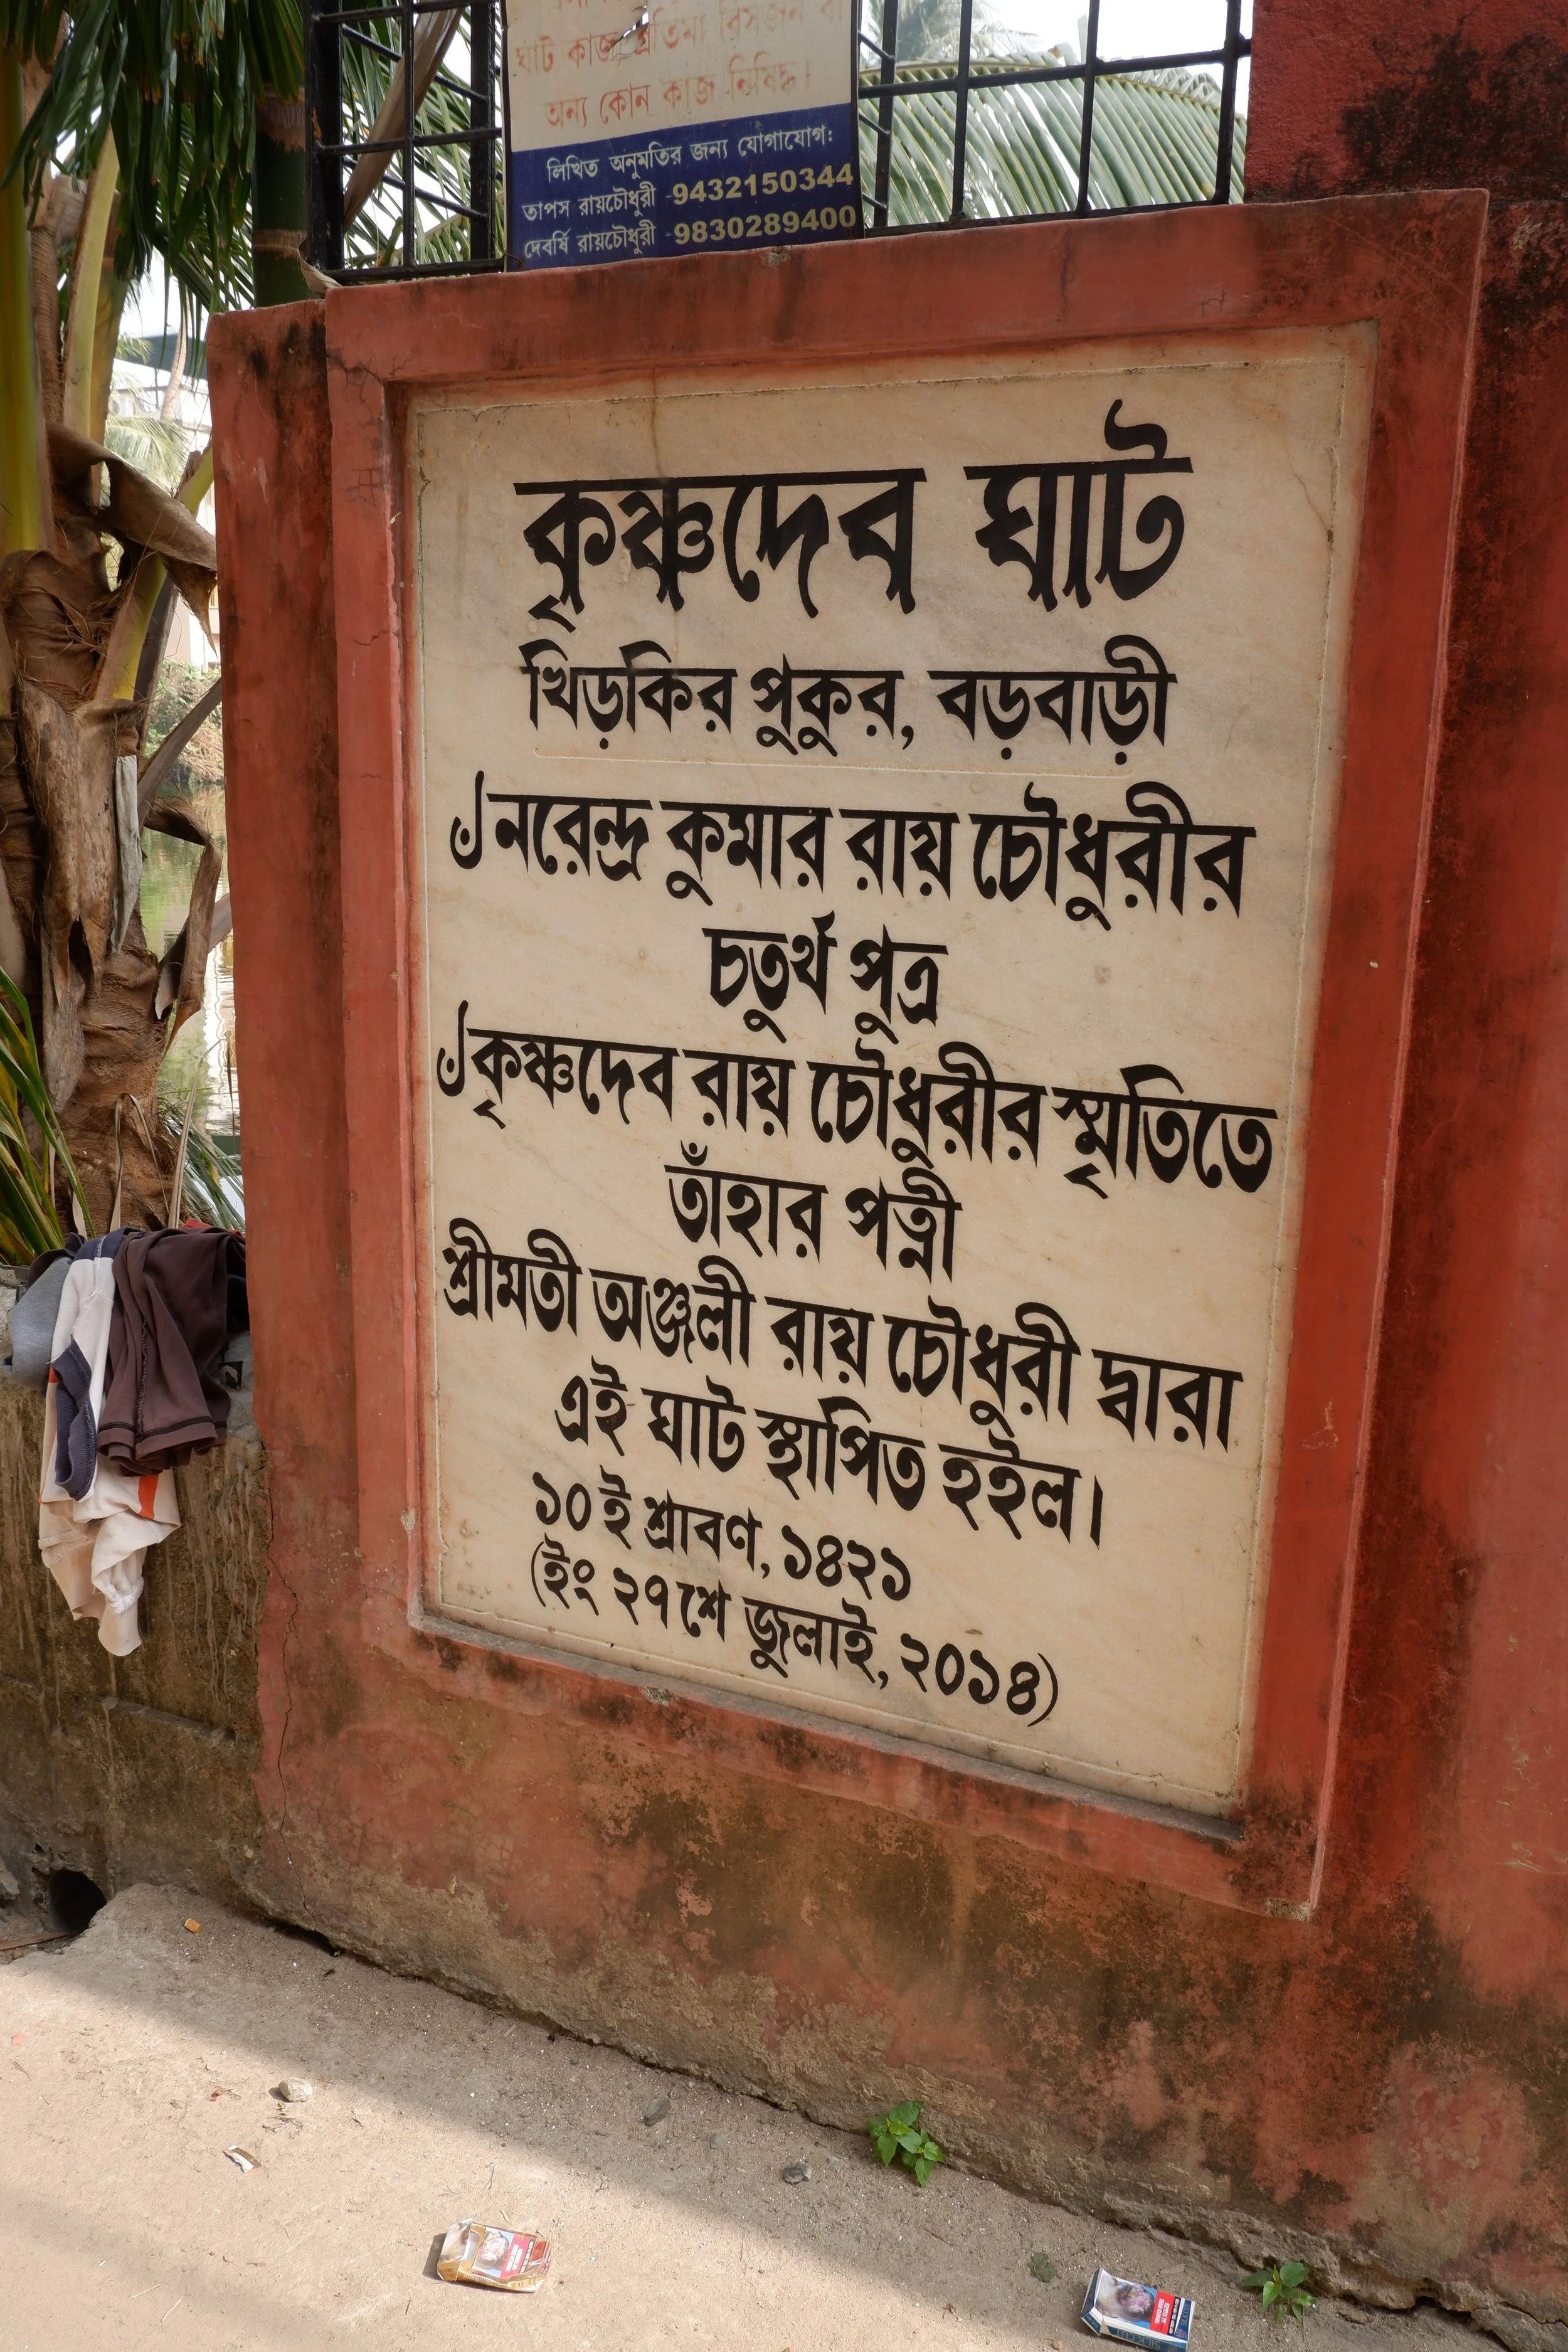 ঘাট কাজ প্রতিমা বিসর্জন বা
অন্য কোন কাজ নিষিদ্ধ।
লিখিত অনুমতির জন্য যোগাযোগ:
তাপস রায়চৌধুরী -9432150344
দেবর্ষি রায়চৌধুরী -9830289400
কৃষ্ণদেব ঘাট
খিড়কির পুকুর, বড়বাড়ী
ঁনরেন্দ্র কুমার রায় চৌধুরীর
চতুর্থ পুত্র
ঁকৃষ্ণদেব রায় চৌধুরীর স্মৃতিতে
তাঁহার পত্নী
শ্রীমতী অঞ্জলী রায় চৌধুরী দ্বারা
এই ঘাট স্থাপিত হইল।
১০ই শ্রাবণ, ১৪২১
(ইং ২৭শে জুলাই, ২০১৪)